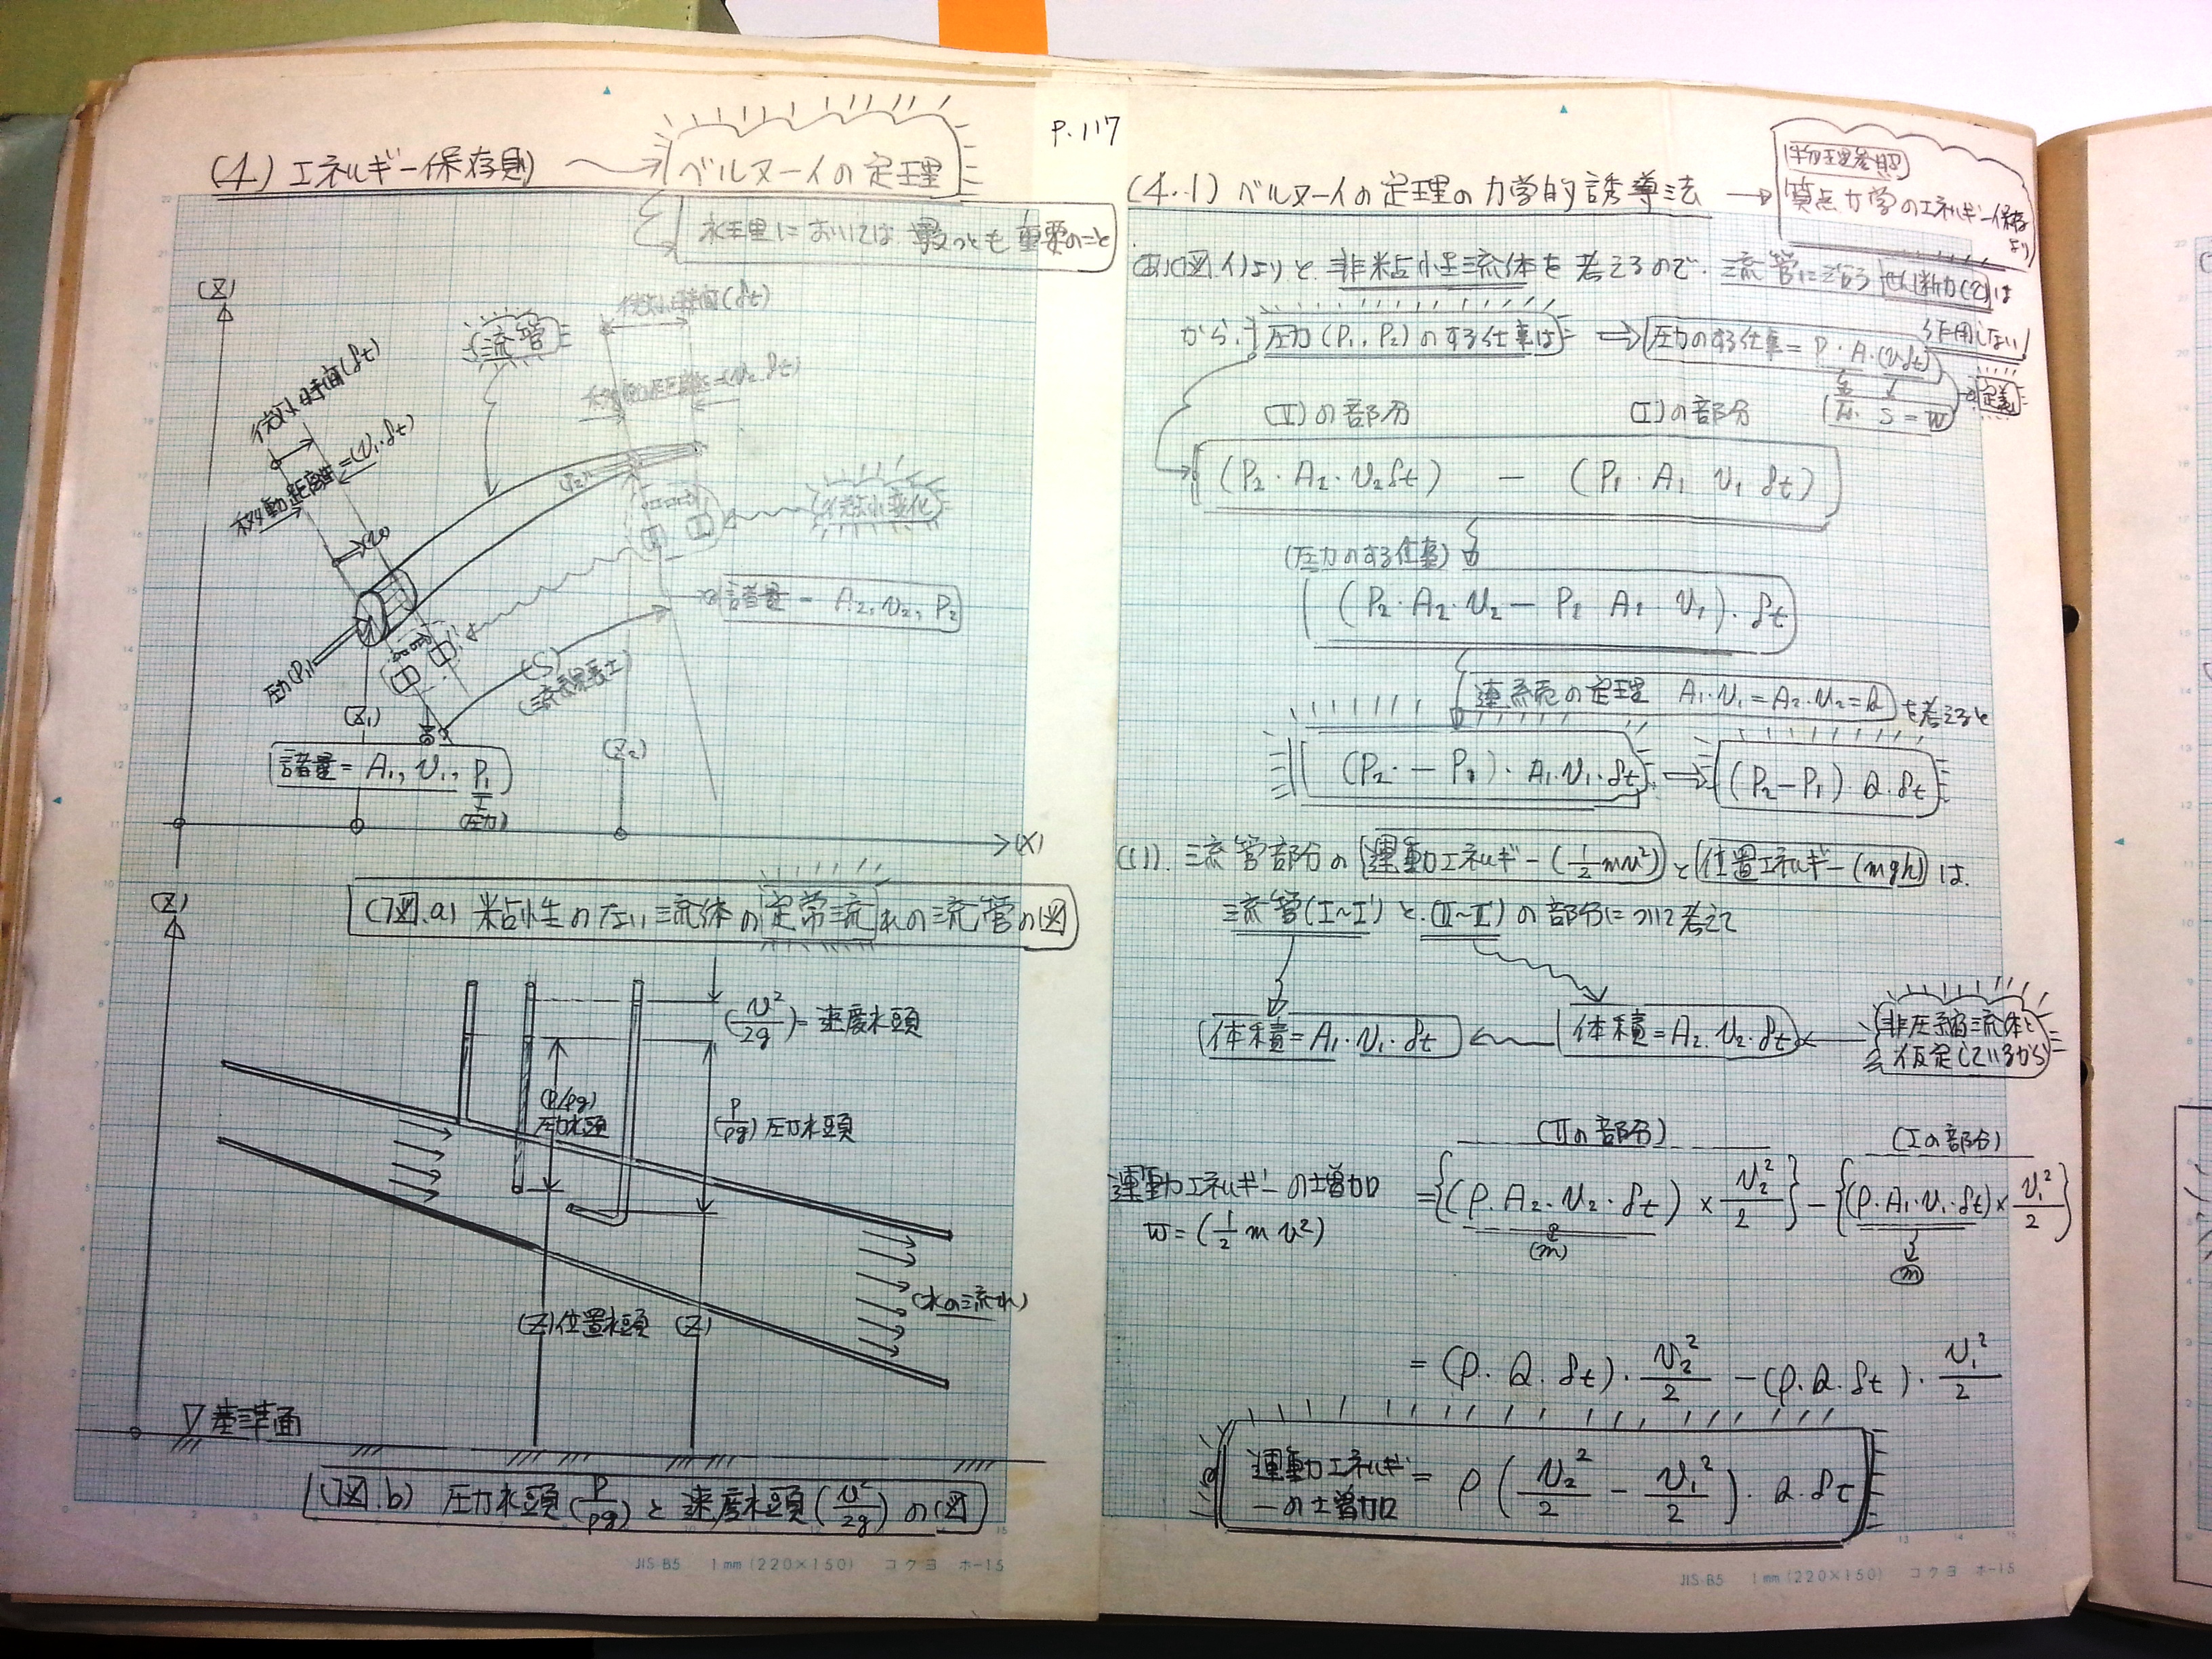 P.117
(4) エネルギー保存則 → ベルヌーイの定理
水理においては最っとも重要のこと
(Z)
微小時間(δt)
流管
微小時間(δt)
移動距離=(V₂・δt)
移動距離=(V₁・δt)
微小変化
諸量= A₂, V₂, P₂
圧力(P₁)
(S)
(Z₁)
(Z₂)
諸量= A₁, V₁, P₁
(圧力)
(X)
(図.a) 粘小生のない流体の定常流れの流管の図
(Z)
(V²/2g)=速度水頭
(P/ρg)
圧力水頭
(P/ρg) 圧力水頭
(水の流れ)
(Z)位置水頭 (Z)
▽基準面
(図.b) 圧力水頭(P/ρg)と速度水頭(V²/2g)の図
JIS-B5 1mm(220×150) コクヨ ホ-15
(4.1) ベルヌーイの定理の力学的誘導法 →
物理参照
質点力学のエネルギー保存
より
(図.イ)よりと非粘小生流体を考えるので、流管に沿うせん断力(τ)は
作用しない
から、圧力(P₁, P₂)のする仕事は ⇒ 圧力のする仕事= P・A・(Vδt)
S = W
定義
(Ⅱ)の部分 (Ⅰ)の部分
(P₂・A₂・V₂δt) − (P₁・A₁ V₁ δt)
(圧力のする仕事)
(P₂・A₂・V₂ − P₁ A₁ V₁)・δt
連続の定理 A₁・V₁=A₂・V₂=Q を考えると
(P₂・−P₁)・A₁・V₁・δt ⇒ (P₂−P₁)・Q・δt
流管部分の運動エネルギー(½mv²)と位置エネルギー(mgh)は、
流管(Ⅰ~Ⅰ')と(Ⅱ~Ⅱ')の部分について考えて
体積=A₁・V₁・δt ← 体積=A₂・V₂・δt ←
非圧縮流体と
仮定しているから
(Ⅱの部分) (Ⅰの部分)
運動エネルギーの増加 ={(ρ・A₂・V₂・δt)×V₂²/2}−{(ρ・A₁・V₁・δt)×V₁²/2}
W=(½mv²)
(m) (m)
=(ρ・Q・δt)・V₂²/2 −(ρ・Q・δt)・V₁²/2
運動エネルギーの増加 = ρ(V₂²/2 − V₁²/2)・Q・δt
JIS-B5 1mm(220×150) コクヨ ホ-15